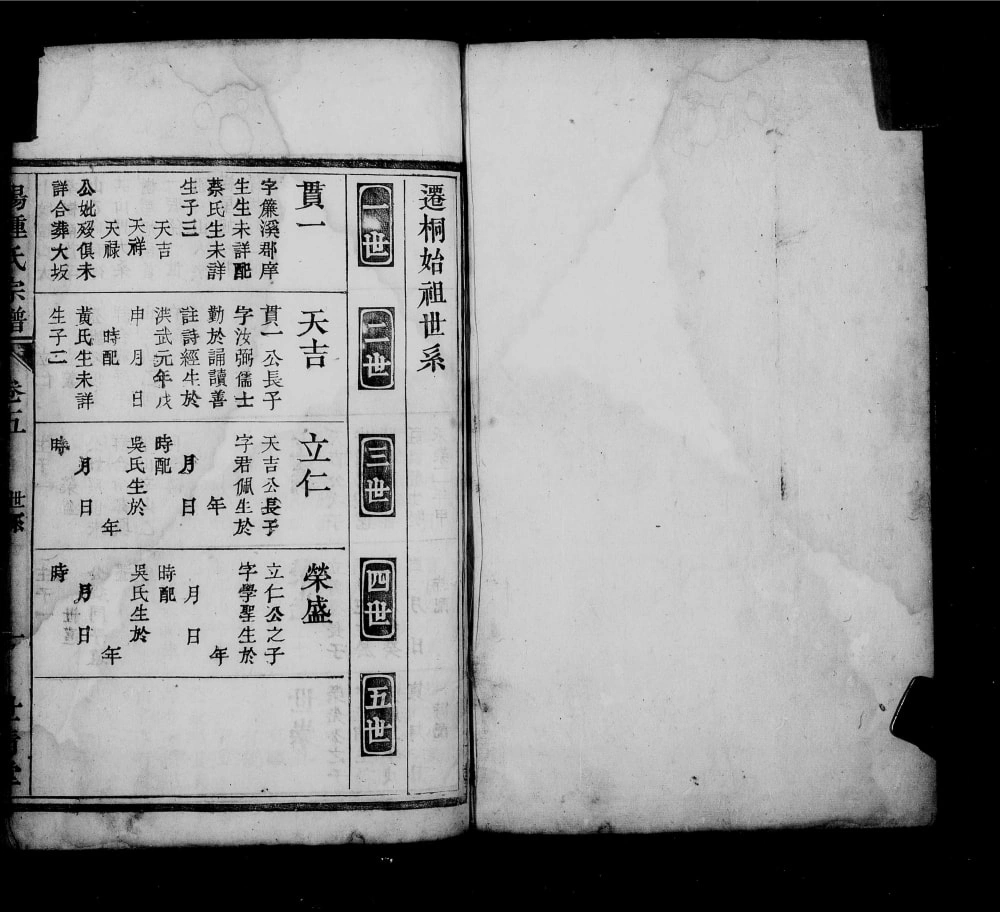 遷桐始祖世系
一世
二世
三世
四世
五世
貫一
字簾溪郡庠
生生未詳配
蔡氏生未詳
生子三
天吉
天祥
天祿
公妣歿俱未
詳合葬大坂
天吉
貫一公長子
字汝弼儒士
勤於誦讀善
註詩經生於
洪武元年戊
申 月 日
時配
黃氏生未詳
生子二
立仁
天吉公長子
字君佩生於
年
月 日
時配
吳氏生於
年
月 日
時
榮盛
立仁公之子
字學聖生於
年
月 日
時配
吳氏生於
年
月 日
時
氏宗譜
卷五
世系